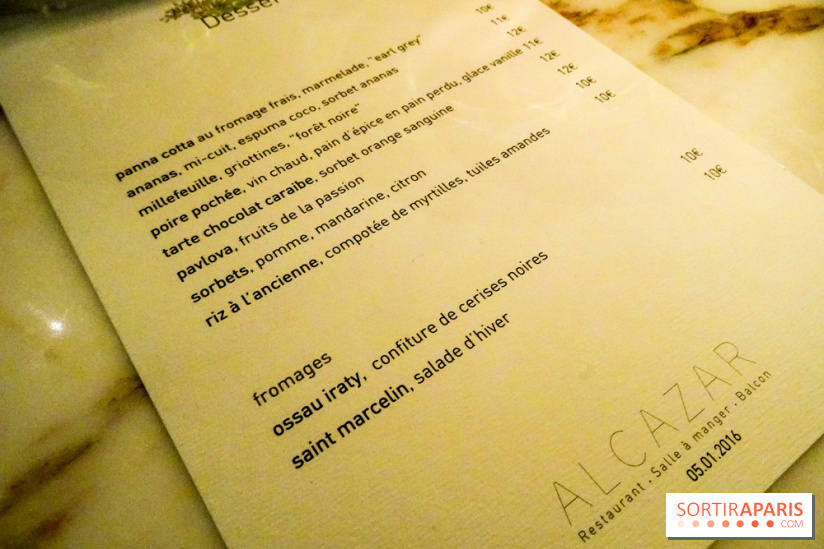 Desser
panna cotta au fromage frais, marmelade, "earl grey" 10€
ananas, mi-cuit, espuma coco, sorbet ananas 11€
millefeuille, griottines, "forêt noire" 12€
poire pochée, vin chaud, pain d'épice en pain perdu, glace vanille 11€
tarte chocolat caraïbe, sorbet orange sanguine 12€
pavlova, fruits de la passion 12€
sorbets, pomme, mandarine, citron 10€
riz à l'ancienne, compotée de myrtilles, tuiles amandes 10€
fromages
ossau iraty, confiture de cerises noires 10€
saint marcelin, salade d'hiver 10€
ALCAZAR
Restaurant . Salle à manger . Balcon
05.01.2016
SORTIRAPARIS
.COM